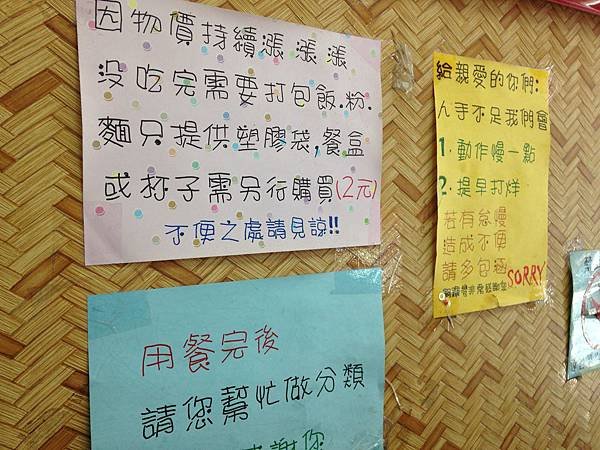 因物價持續漲漲漲
没吃完需要打包飯.粉.
麵只提供塑膠袋,餐盒
或杯子需另行購買(2元)
不便之處請見諒!!
給親愛的你們:
人手不足我們會
1.動作慢一點
2.提早打烊
若有怠慢
造成不便
請多包涵
SORRY
用餐完後
請您幫忙做分類
謝您